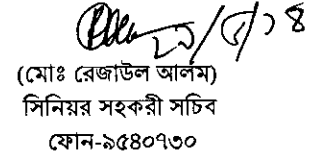 (মোঃ রেজাউল আলম)
সিনিয়র সহকরী সচিব
ফোন-৯৫৪০৭৩০